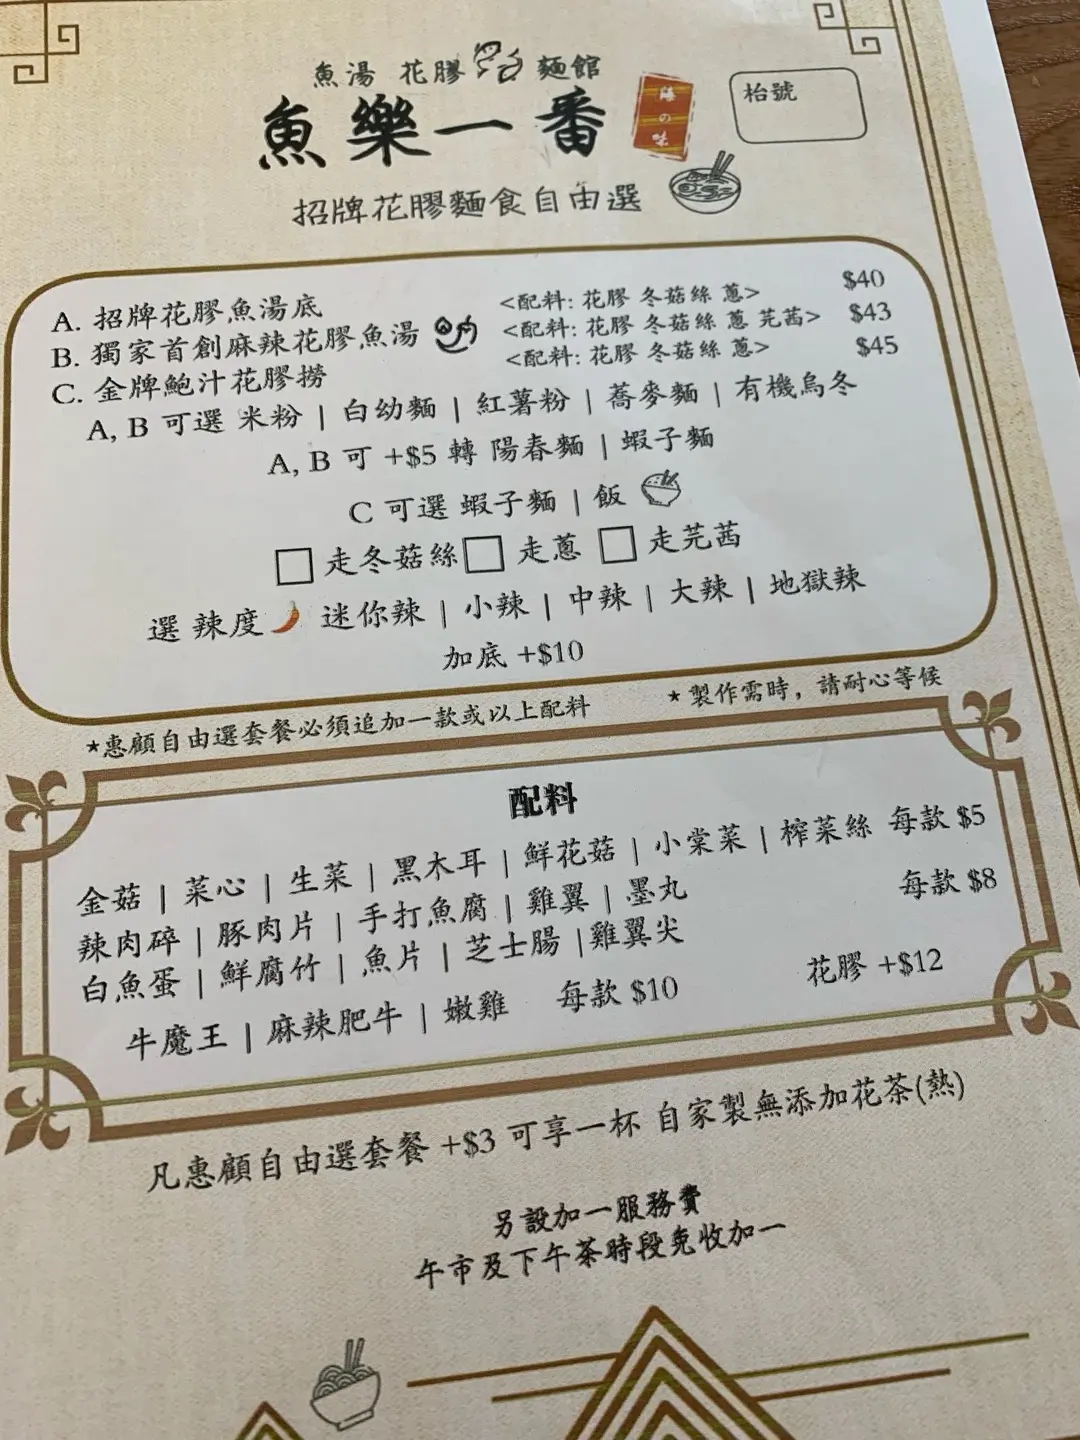 魚湯 花膠 麵館
魚樂一番
海の味
枱號
招牌花膠麵食自由選
A. 招牌花膠魚湯底 <配料: 花膠 冬菇絲 蔥> $40
B. 獨家首創麻辣花膠魚湯 <配料: 花膠 冬菇絲 蔥 芫茜> $43
C. 金牌鮑汁花膠撈 <配料: 花膠 冬菇絲 蔥> $45
A, B 可選 米粉 | 白幼麵 | 紅薯粉 | 蕎麥麵 | 有機烏冬
A, B 可 +$5 轉 陽春麵 | 蝦子麵
C 可選 蝦子麵 | 飯
走冬菇絲 走蔥 走芫茜
選 辣度 迷你辣 | 小辣 | 中辣 | 大辣 | 地獄辣
加底 +$10
*惠顧自由選套餐必須追加一款或以上配料 *製作需時，請耐心等候
配料
金菇 | 菜心 | 生菜 | 黑木耳 | 鮮花菇 | 小棠菜 | 榨菜絲 每款 $5
辣肉碎 | 豚肉片 | 手打魚腐 | 雞翼 | 墨丸 每款 $8
白魚蛋 | 鮮腐竹 | 魚片 | 芝士腸 |雞翼尖
牛魔王 | 麻辣肥牛 | 嫩雞 每款 $10 花膠 +$12
凡惠顧自由選套餐 +$3 可享一杯 自家製無添加花茶(熱)
另設加一服務費
午市及下午茶時段免收加一